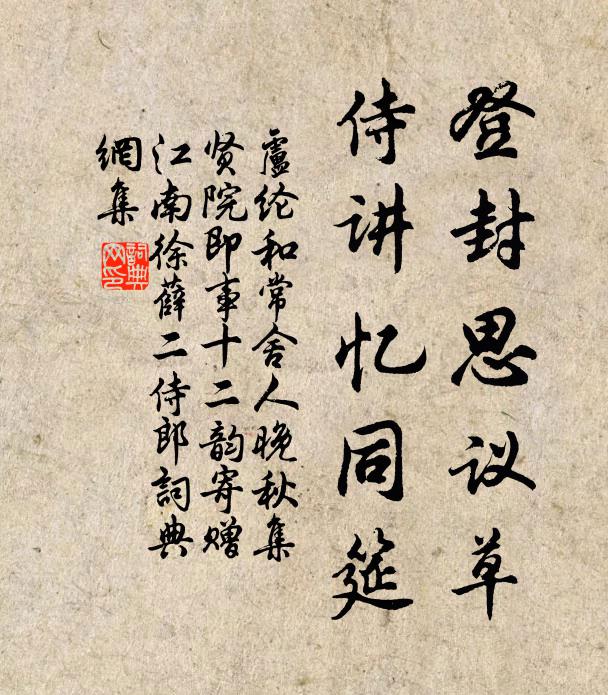 登封思议草
侍讲忆同筵
盧纶和常舍人晚秋集
贤院即事十二韵寄赠
江南徐薛二侍郎詞典
網集
詞典網印